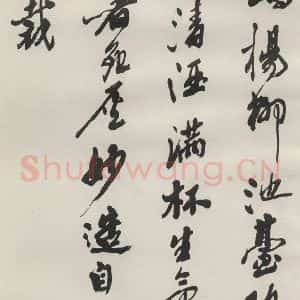 楊柳池臺
清酒滿杯生
者虛妙造自
載
Shufawang.CN